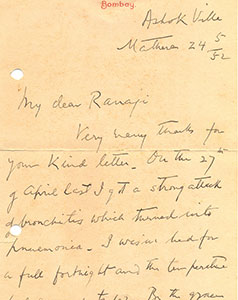 Bombay.
Ashok Ville
Matheran 24 5/52
My dear Ranaji
Very many thanks for
your kind letter. On the 27th
of April last I got a strong attack
of bronchitis which turned into
pneumonea. I was in bed for
a full fortnight and the temperature
By the grace